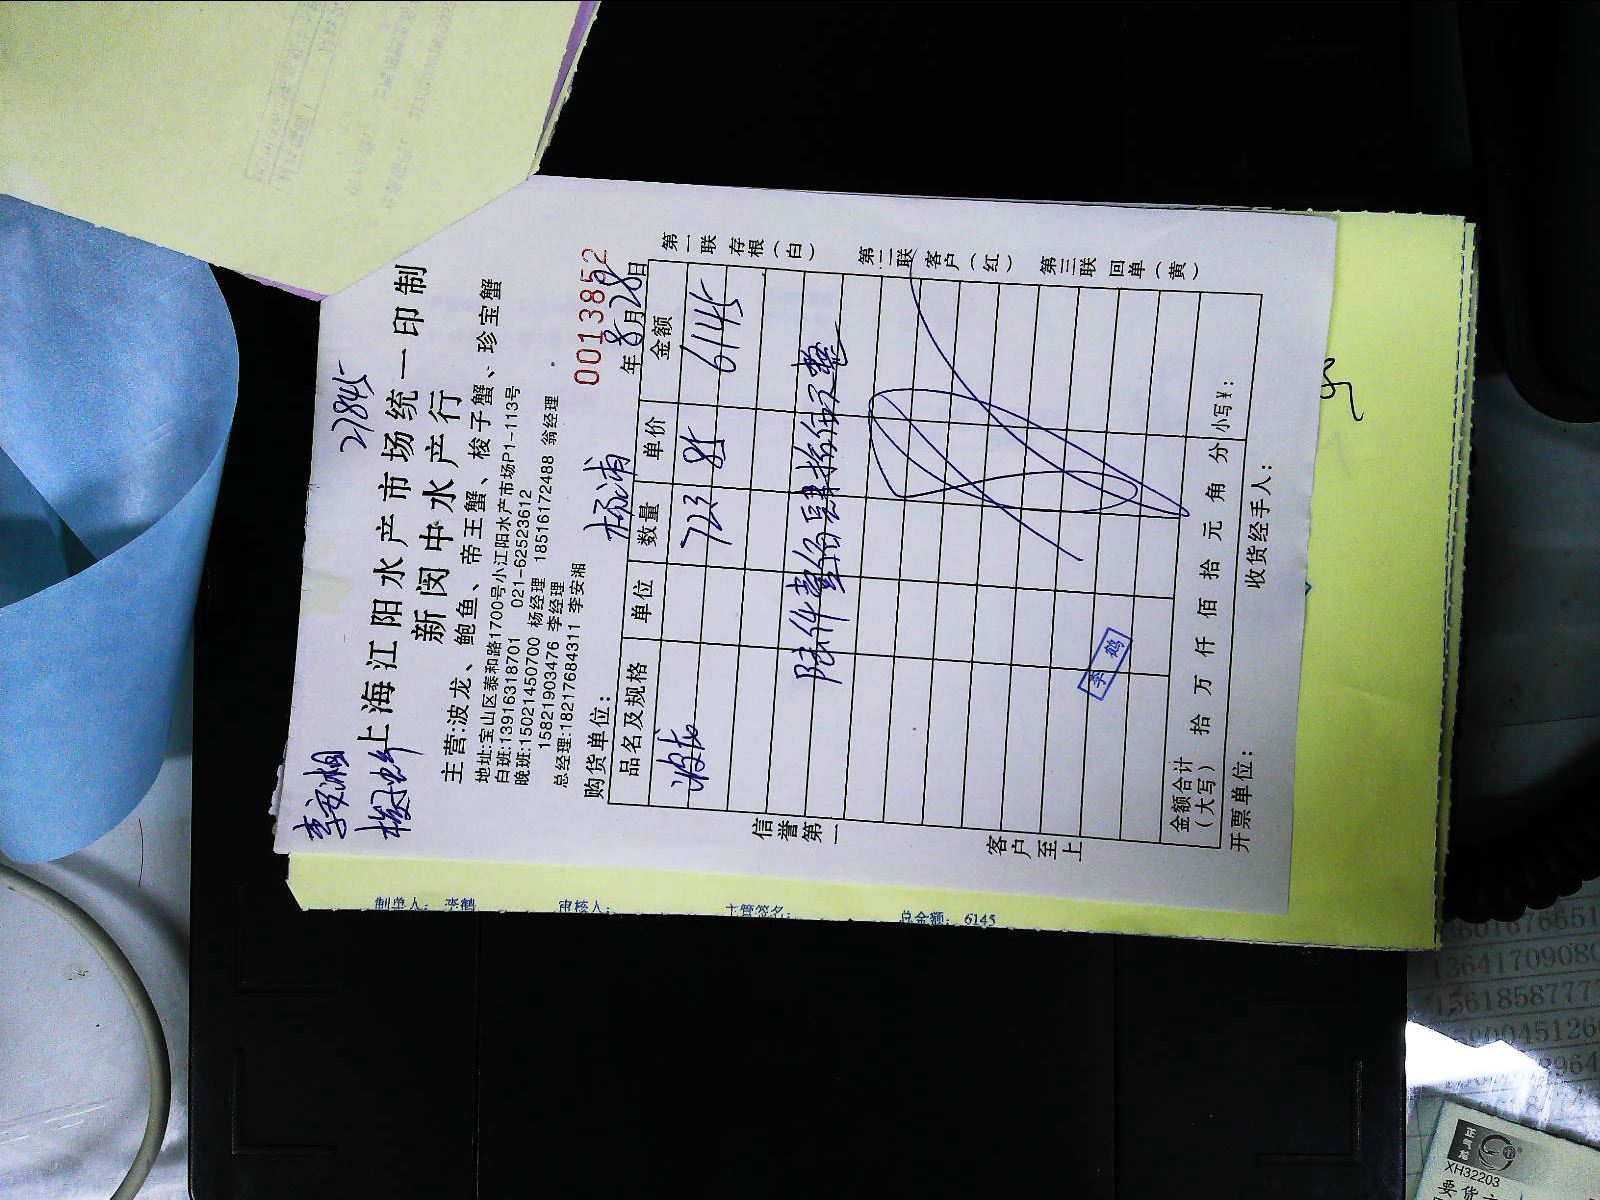 李安湘
21845
上海江阳水产市场统一印制
新闵中水产行
主营:波龙、鲍鱼、帝王蟹、梭子蟹、珍宝蟹
地址:宝山区泰和路1700号小江阳水产市场P1-113号
白班:13916318701 021-62523612
晚班:15021450700 杨经理 18516172488 翁经理
15821903476 李经理
总经理:18217684311 李安湘
0013852
购货单位: 杨浦 年8月28日
品名及规格 单位 数量 单价 金额
波龙 723 85 6145
陆仟壹佰肆拾伍元整
信誉第一
客户至上
第一联存根(白)
第二联客户(红)
第三联回单(黄)
李鹤
金额合计(大写) 拾 万 仟 佰 拾 元 角 分 小写¥:
开票单位: 收货经手人:
制单人: 李鹤 审核人: 主管签名: 总金额: 6145
正黄龙
XH32203